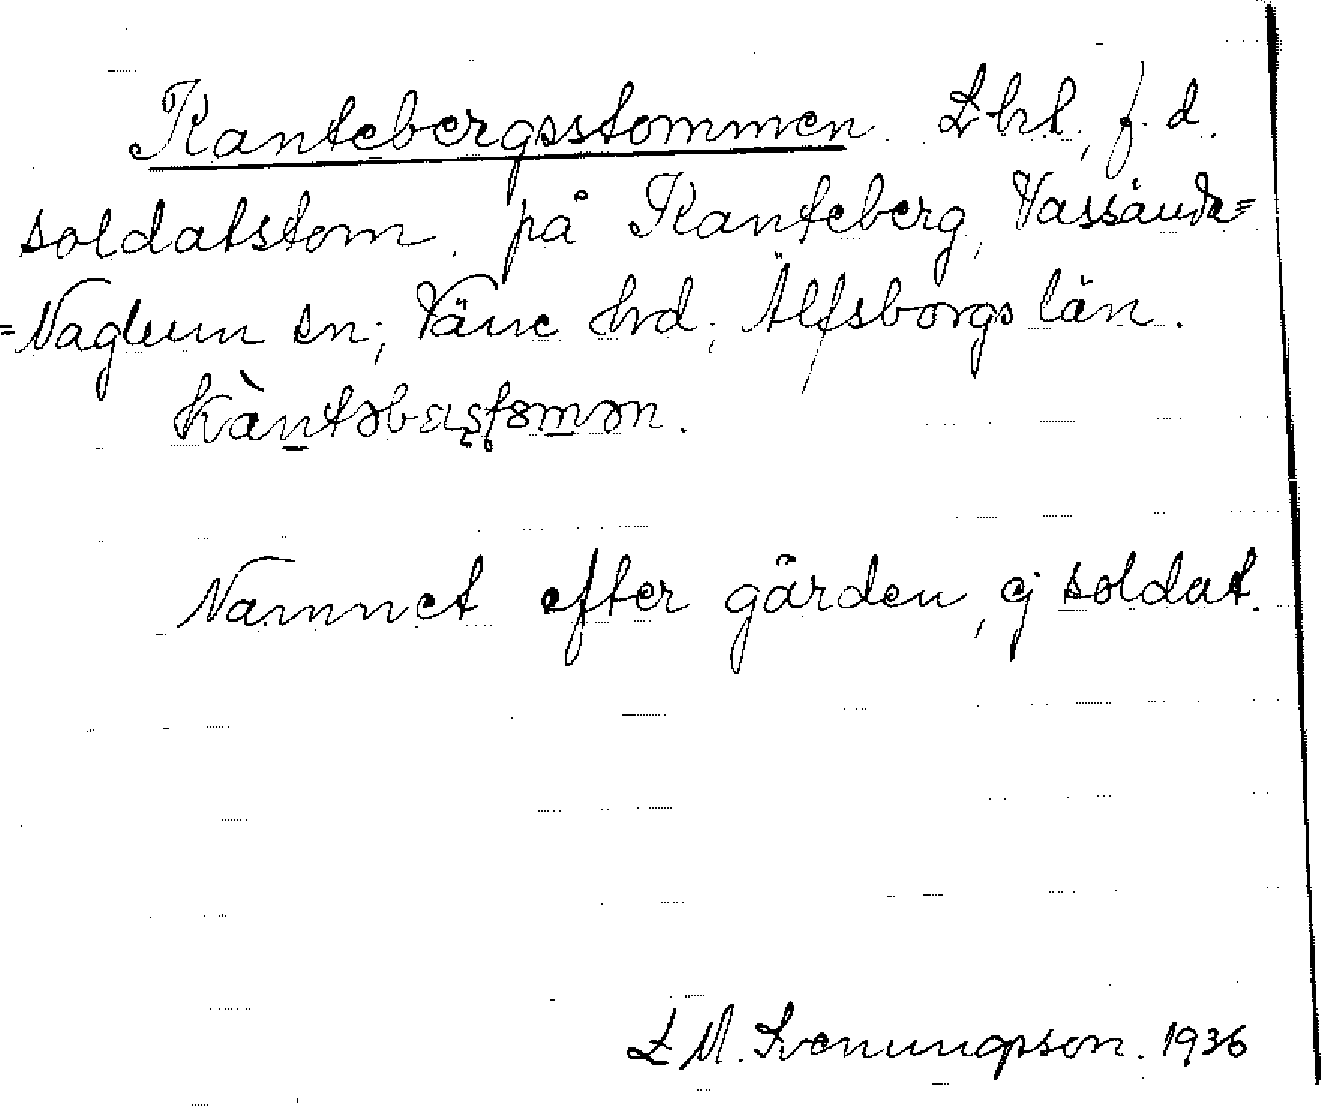 Kantebergsstommen. Lht, f. d.
soldatstom på Kanteberg, Vassända=
=Naglum sn; Väne hrd; Älfsborgs län.
Namnet efter gården, ej soldat.
L M. Svenungsson. 1936